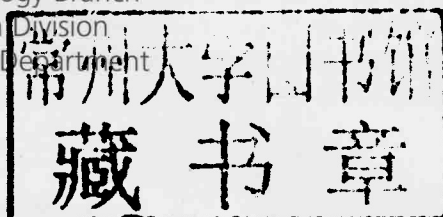 ogy Branch
Division
Department
常州大学图书馆
藏书章